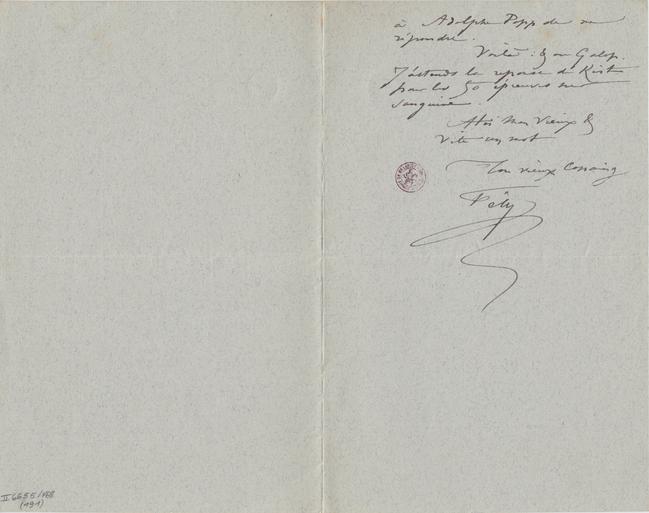 à Adolphe Popp de me
répondre.
Voilà : & au Galop.
J'attends la réponse de Kist
pour les 50 épreuves sur
Sanguine.
Mon Vieux &
Vite un mot
Ton vieux
Fély
II 6655/488
(191)